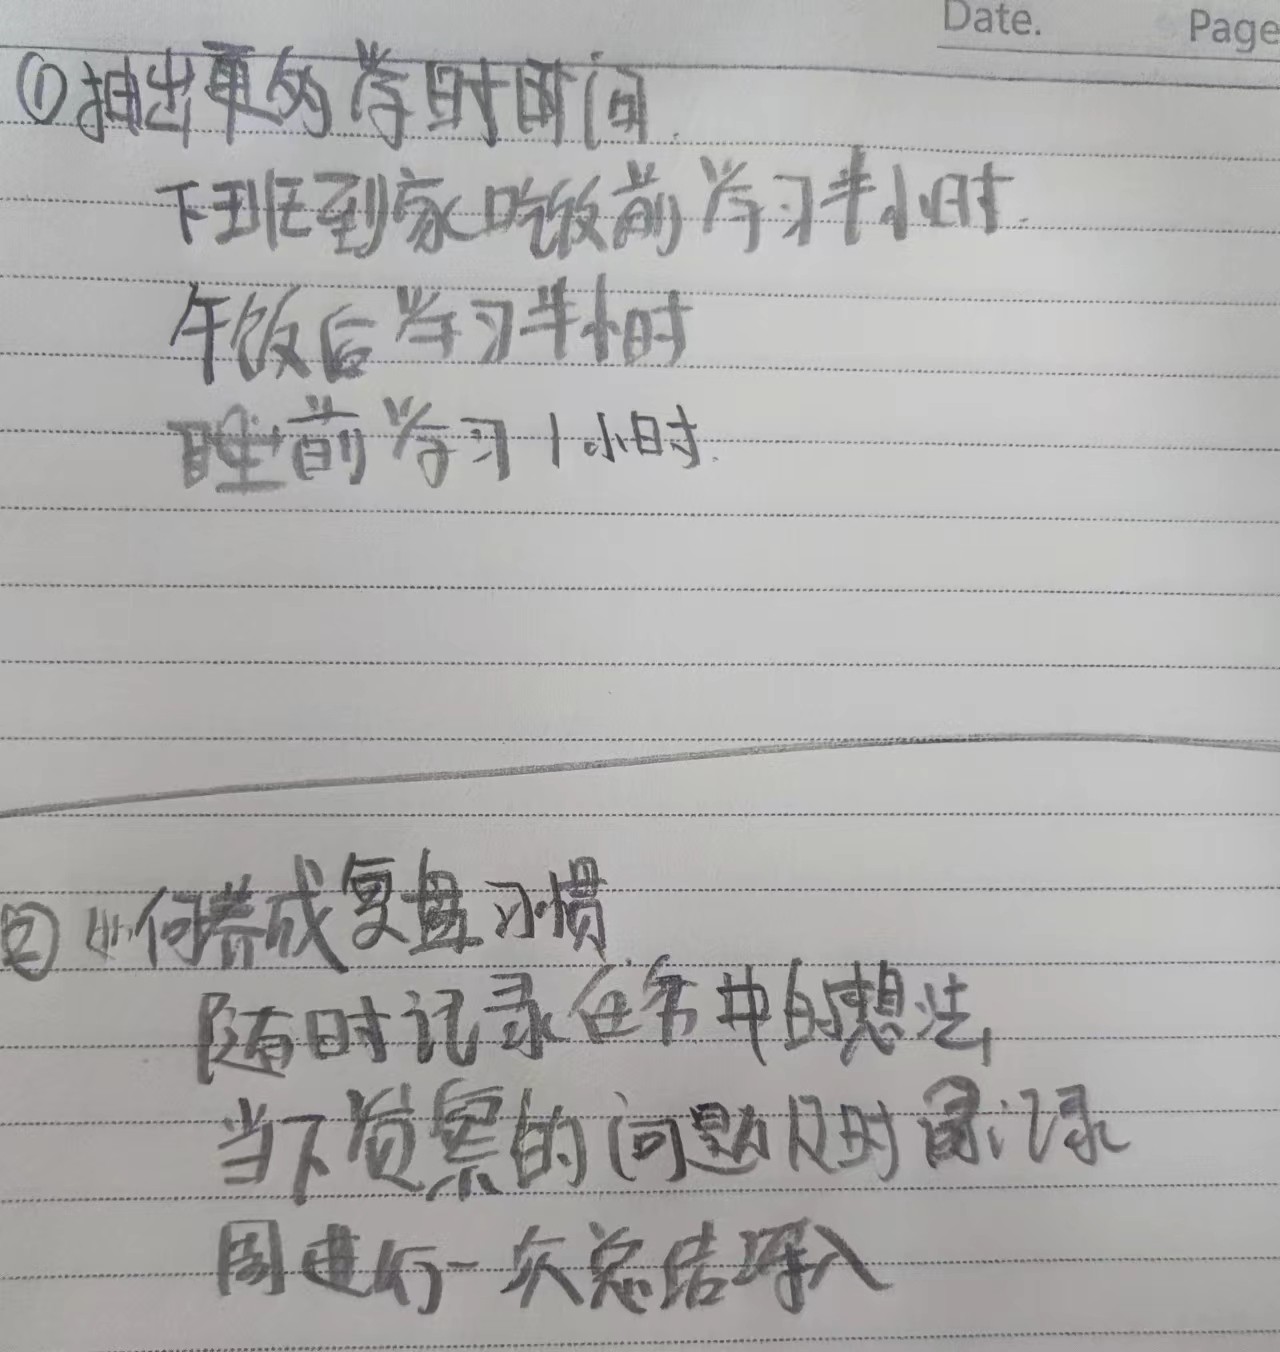 Date. Page
①抽出更的学时时间.
下班到家吃饭前学习半小时.
午饭后学习半小时
睡前学习1小时.
② 如何养成复盘习惯
随时记录任务中的想法
当下的问题及时记录
周进行一次总结深入